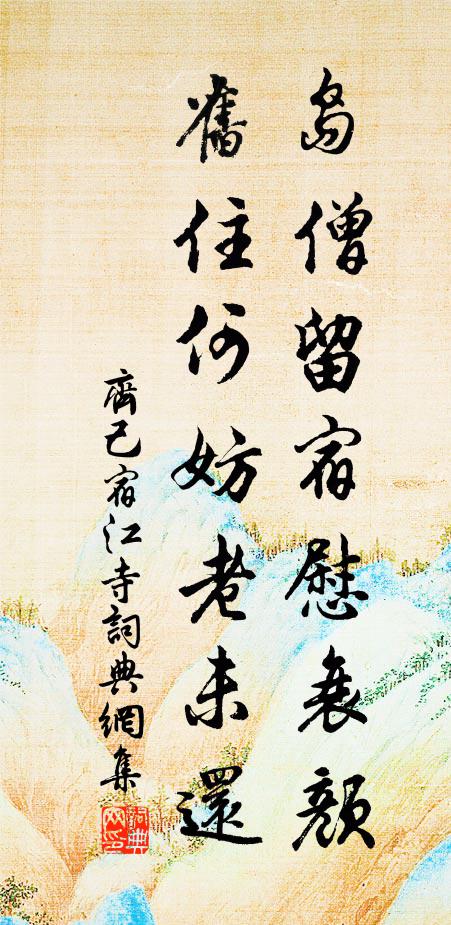 島僧留宿慰衰顏
舊住何妨老未還
齊己宿江寺詞典網集
詞典网印